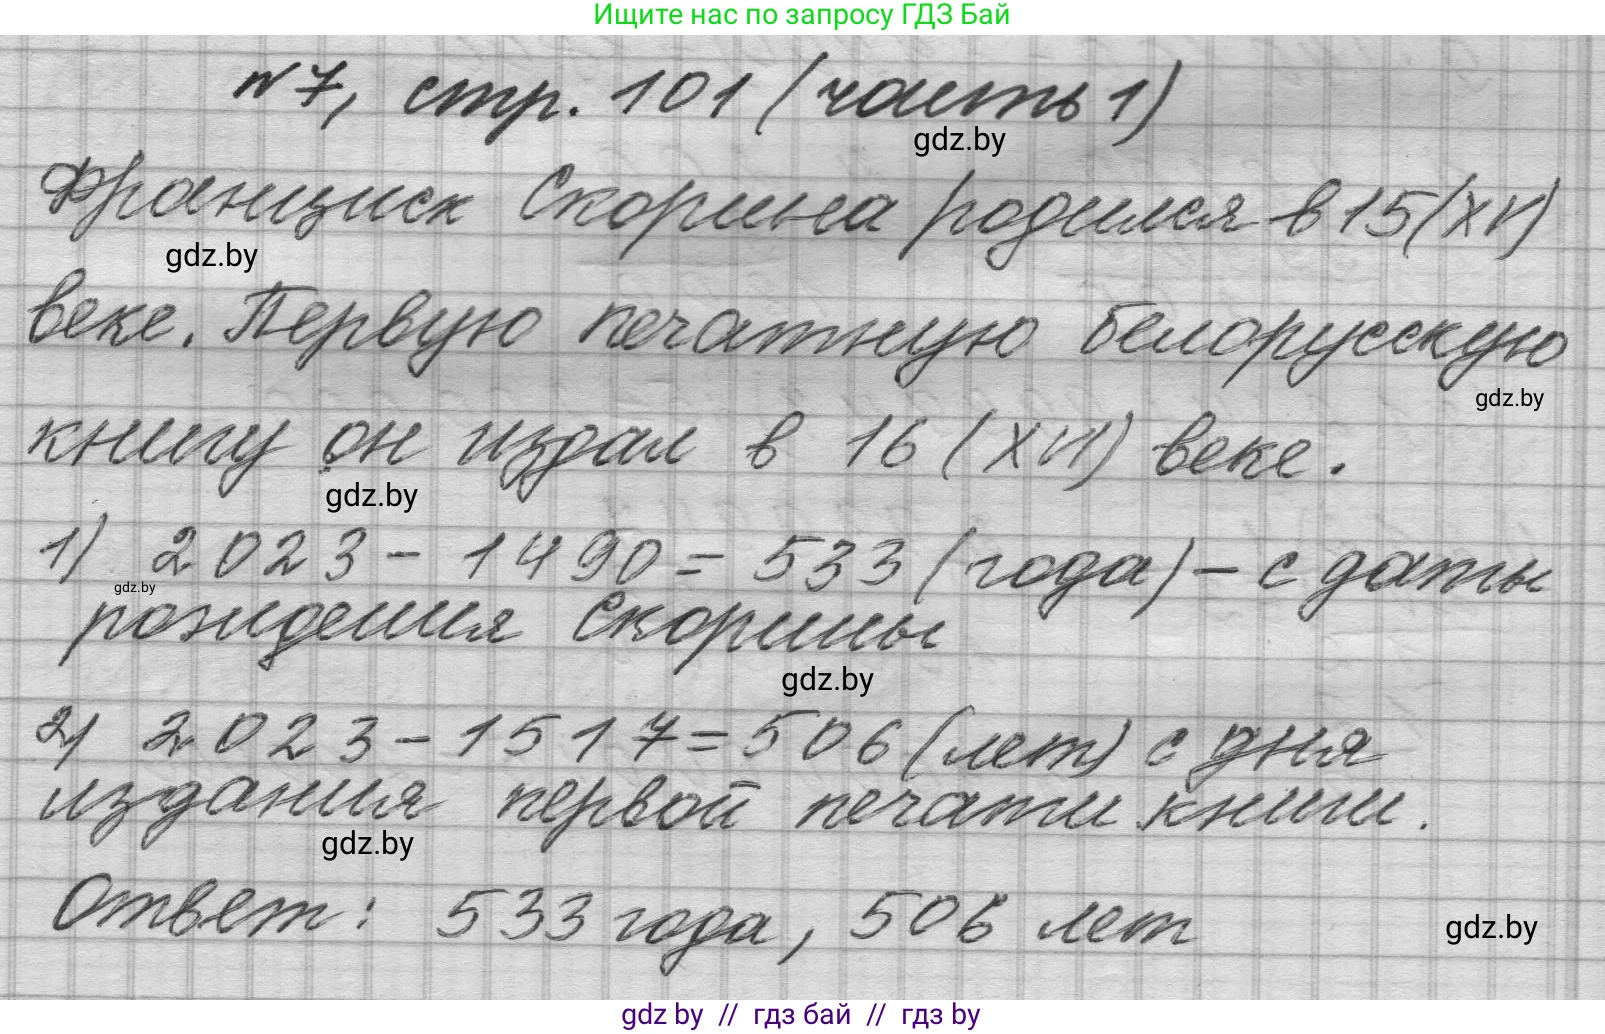 Ищите нас по запросу ГДЗ Бай
№7, стр. 101 (часть 1)
gdz.by
Франциск Скорина родился в 15 (XV)
gdz.by
веке. Первую печатную белорусскую
gdz.by
книгу он издал в 16 (XVI) веке.
gdz.by
1) 2023 - 1490 = 533 (года) - с даты
gdz.by
рождения Скорины
gdz.by
2) 2023 - 1517 = 506 (лет) с дня
издания первой печати книги.
gdz.by
Ответ: 533 года, 506 лет
gdz.by
gdz by // гдз бай // гдз by